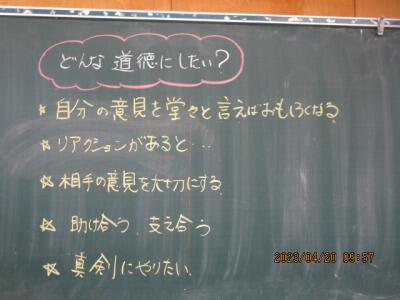 どんな道徳にしたい？
☆自分の意見を堂々と言えばおもしろくなる
☆リアクションがあると…
☆相手の意見を大切にする
☆助け合う、支え合う
☆真剣にやりたい
2023/04/20 09:57